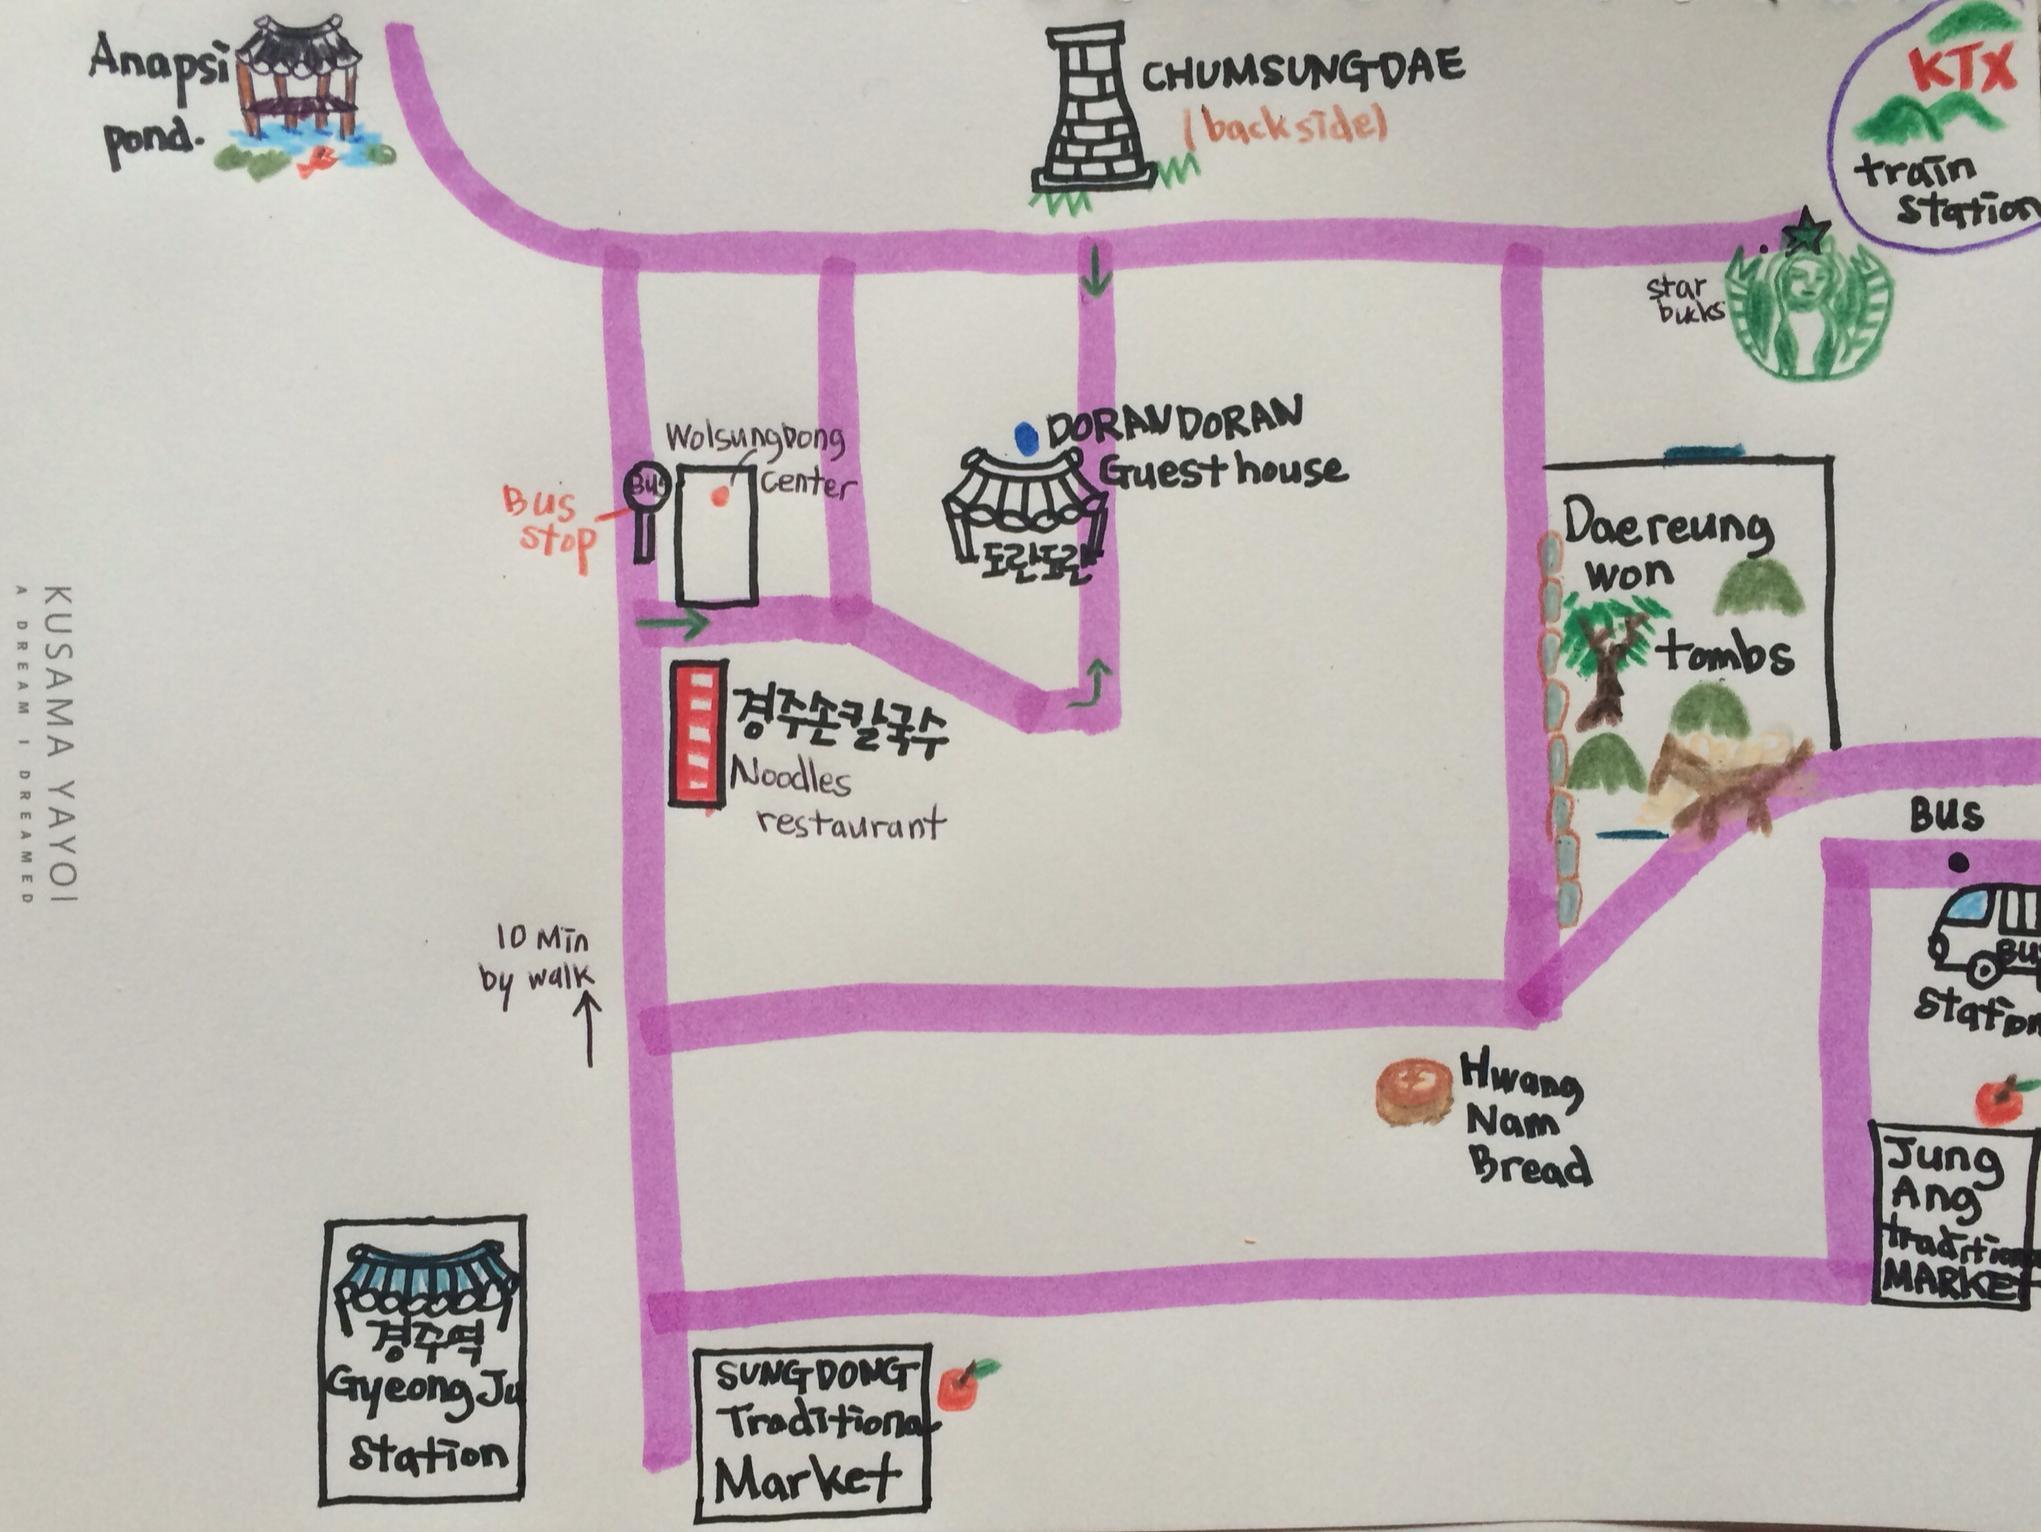 Anapsi
pond.
CHUMSUNGDAE
(backside)
KTX
train
station
star
bucks
DORANDORAN
Guesthouse
도란도란
Wolsungdong
center
Bus
stop
BUS
Daereung
won
tombs
경주손칼국수
Noodles
restaurant
BUS
BUS
station
10 Min
by walk
Hwang
Nam
Bread
Jung
Ang
traditional
MARKET
경주역
GyeongJu
station
SUNGDONG
Traditional
Market
KUSAMA YAYOI
A DREAM I DREAMED